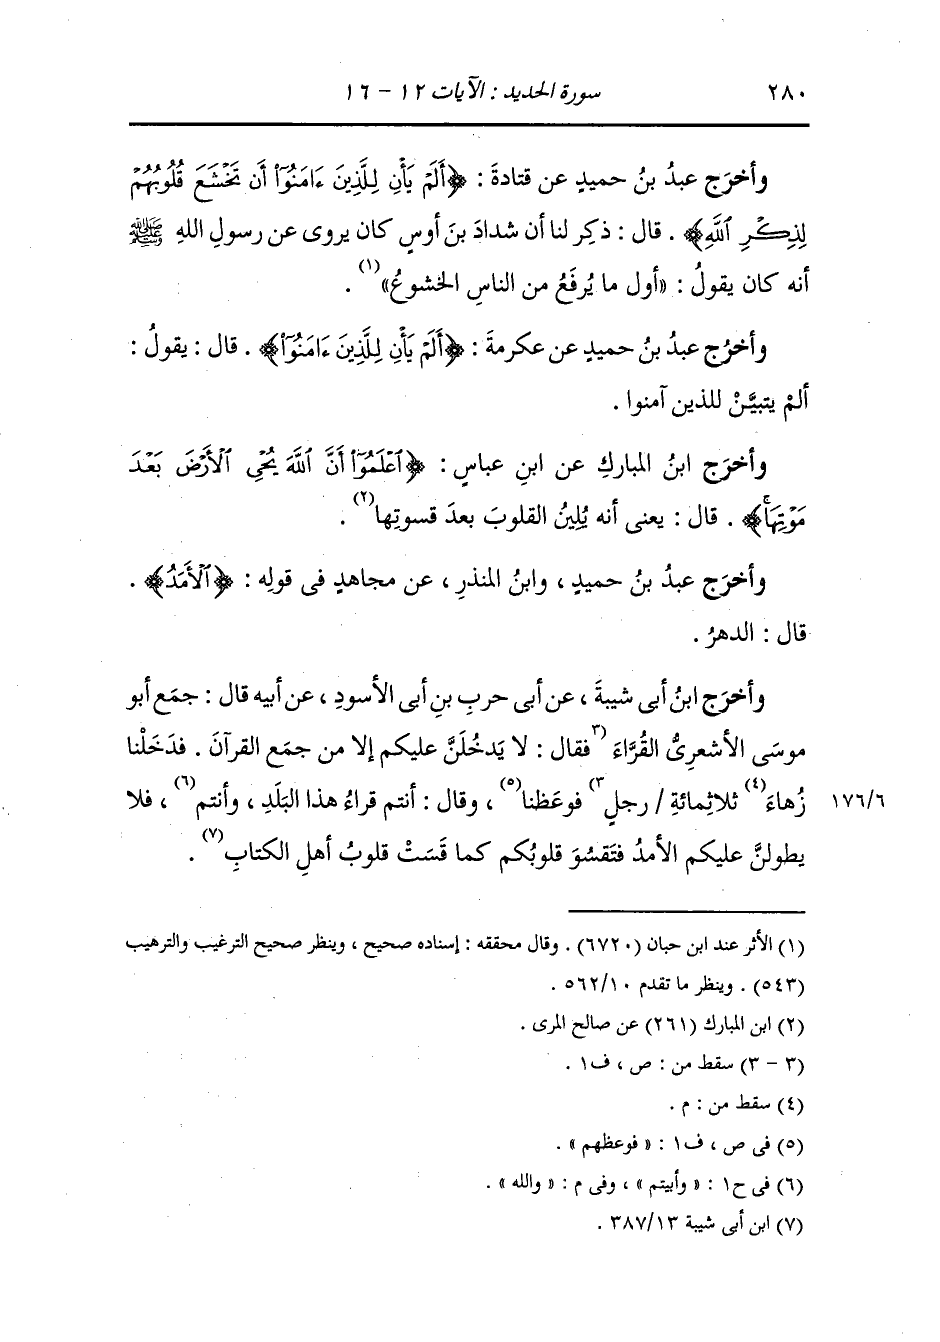 ٢٨٠ سورة الحديد : الآيات ١٢ - ١٦
وأخرَج عبدُ بنُ حميدٍ عن قتادةَ : ﴿أَلَمْ يَأْنِ لِلَّذِينَ ءَامَنُوٓا۟ أَن تَخْشَعَ قُلُوبُهُمْ
لِذِكْرِ ٱللَّهِ﴾ . قال : ذكِر لنا أن شدادَ بنَ أوسٍ كان يروى عن رسولِ اللهِ ﷺ
أنه كان يقولُ : «أول ما يُرفَعُ من الناسِ الخشوعُ»(١) .
وأخرَج عبدُ بنُ حميدٍ عن عكرمةَ : ﴿أَلَمْ يَأْنِ لِلَّذِينَ ءَامَنُوٓا۟﴾ . قال : يقولُ :
ألمْ يتبيَّنْ للذين آمنوا .
وأخرَج ابنُ المباركِ عن ابنِ عباسٍ : ﴿ٱعْلَمُوٓا۟ أَنَّ ٱللَّهَ يُحْىِ ٱلْأَرْضَ بَعْدَ
مَوْتِهَاۚ﴾ . قال : يعنى أنه يُلِينُ القلوبَ بعدَ قسوتِها(٢) .
وأخرَج عبدُ بنُ حميدٍ ، وابنُ المنذرِ ، عن مجاهدٍ فى قولِه : ﴿ٱلْأَمَدُ﴾ .
قال : الدهرُ .
وأخرَج ابنُ أبى شيبةَ ، عن أبى حربِ بنِ أبى الأسودِ ، عن أبيه قال : جمَع أبو
موسَى الأشعرىُّ القُرَّاءَ (٣فقال : لا يَدخُلَنَّ عليكم إلا من جمَع القرآنَ . فدَخَلْنا
زُهاءَ(٤) ثلاثِمائةِ / رجلٍ٣) فوعَظنا(٥) ، وقال : أنتم قراءُ هذا البَلَدِ ، وأنتم(٦) ، فلا ١٧٦/٦
يطولنَّ عليكم الأمدُ فتَقسُوَ قلوبُكم كما قَسَتْ قلوبُ أهلِ الكتابِ(٧) .
(١) الأثر عند ابن حبان (٦٧٢٠) . وقال محققه : إسناده صحيح ، وينظر صحيح الترغيب والترهيب
(٥٤٣) . وينظر ما تقدم ٥٦٢/١٠ .
(٢) ابن المبارك (٢٦١) عن صالح المرى .
(٣ - ٣) سقط من : ص ، ف١ .
(٤) سقط من : م .
(٥) فى ص ، ف١ : « فوعظهم » .
(٦) فى ح١ : « وأبيتم » ، وفى م : « والله » .
(٧) ابن أبى شيبة ٣٨٧/١٣ .